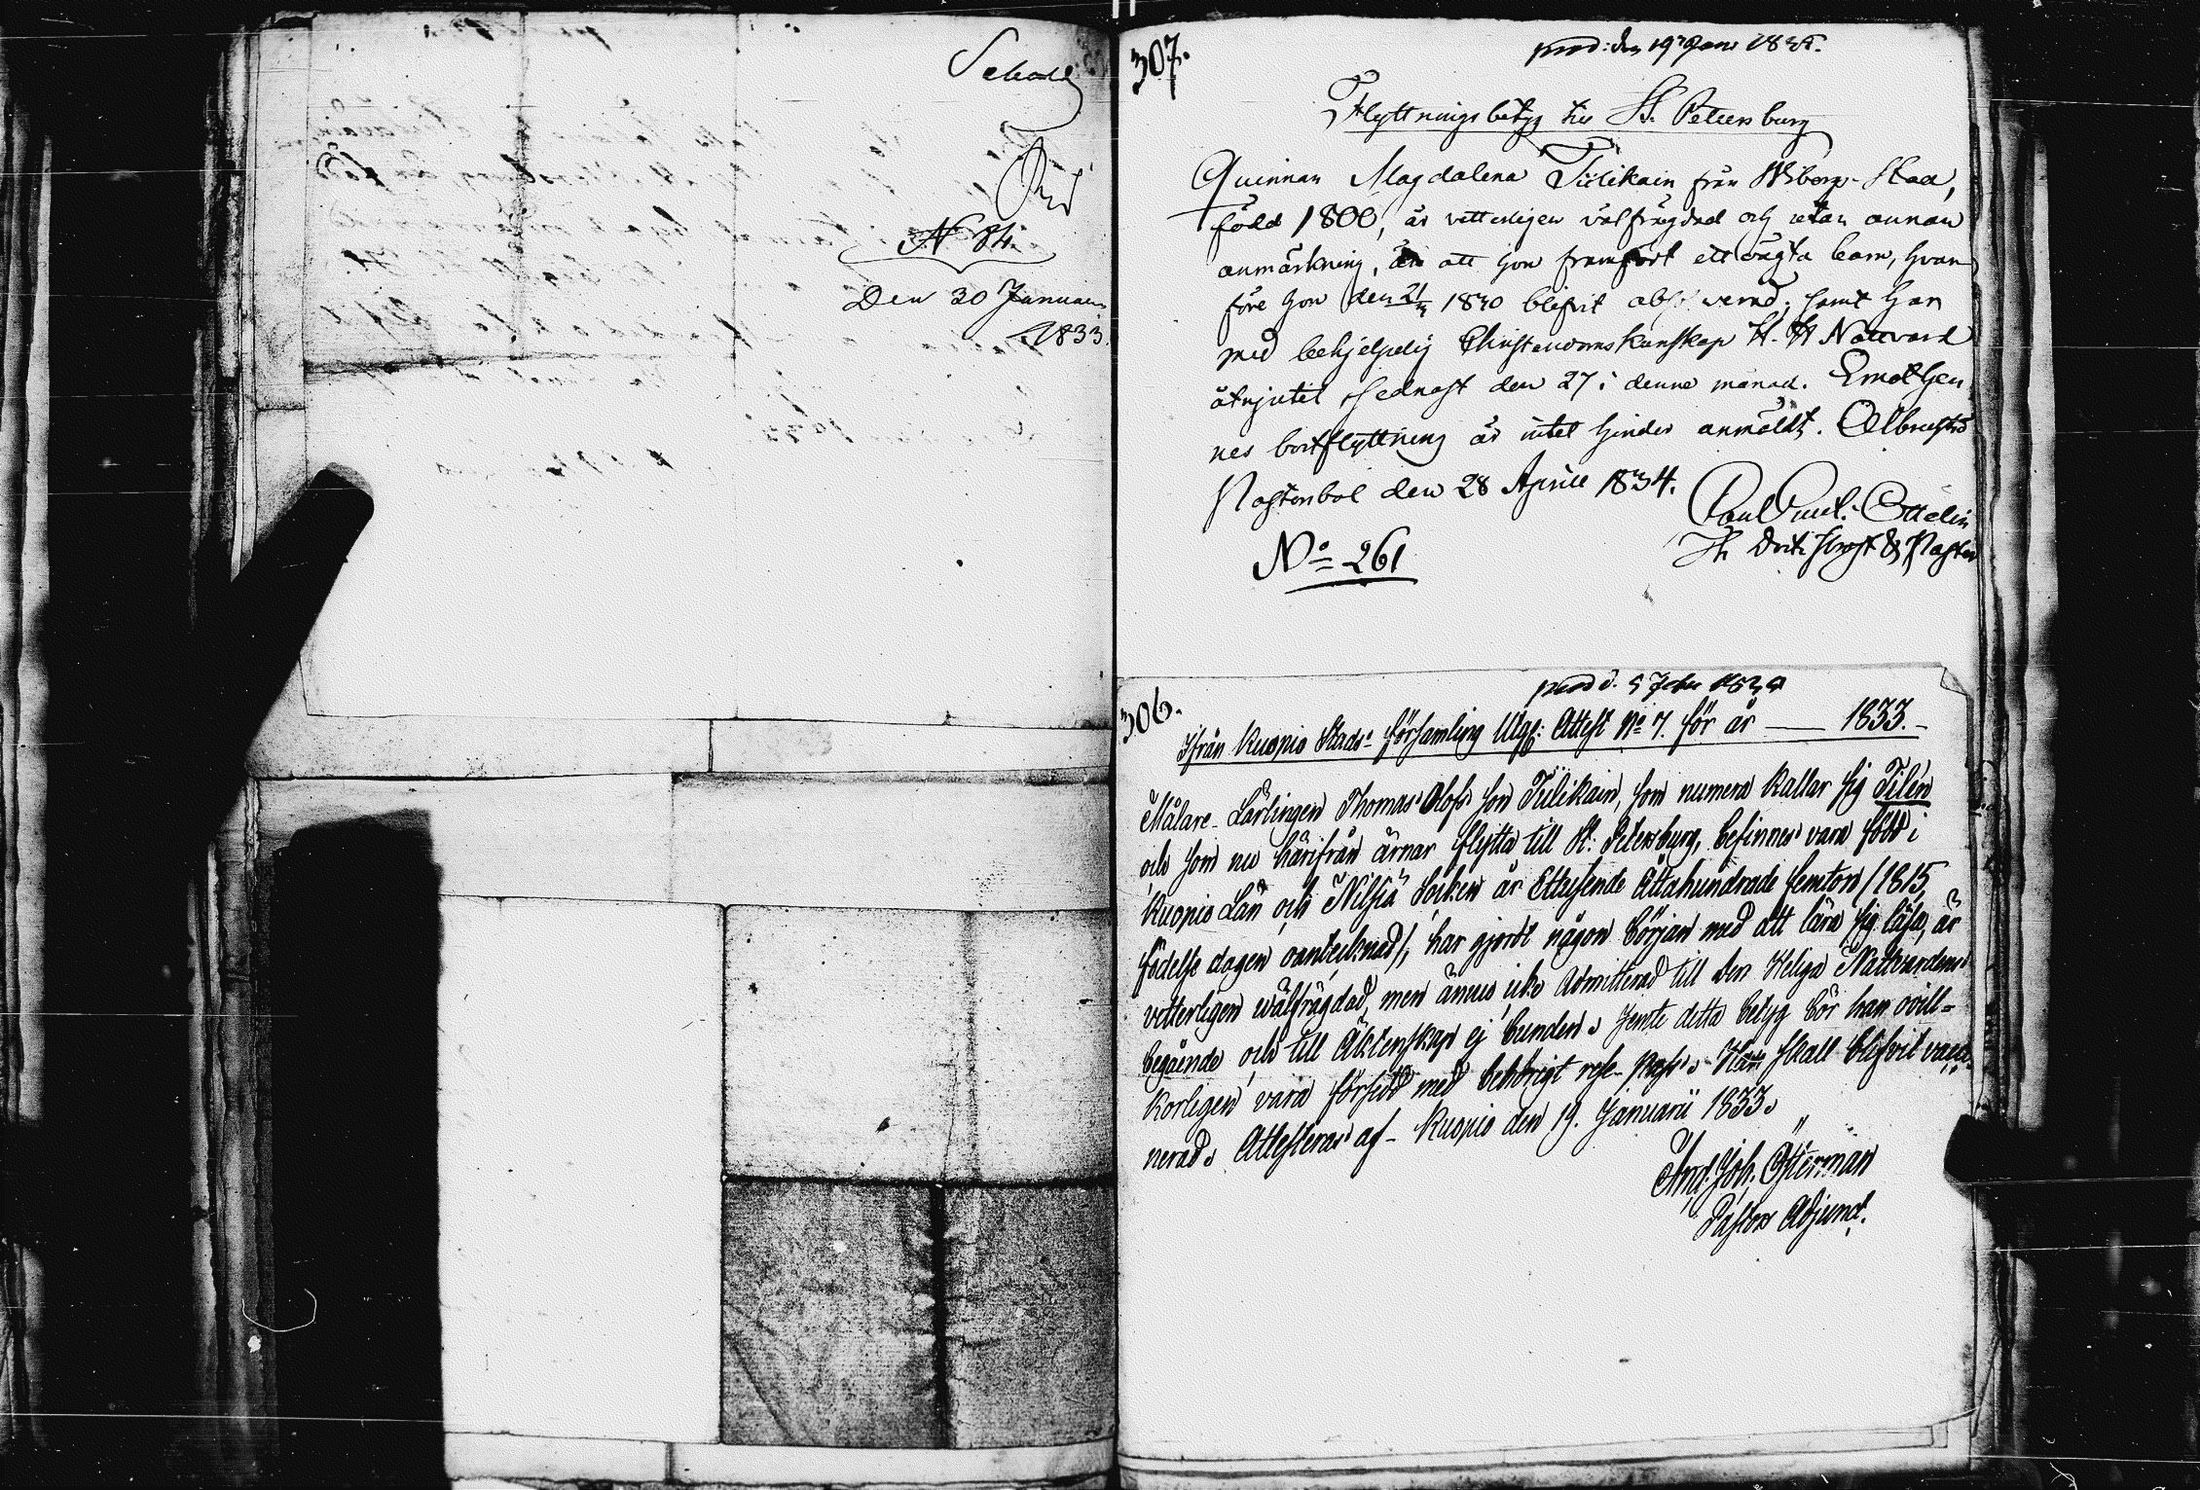 N 84.
Den 30 Januari
1833.
307.
prod: den 19 Janu 183
Flyttningsbetyg till St. Petersburg
Quinnan Magdalena Tiilikain från Wiborgs Stad,
född 1800, är vetterligen välfrägdad och utan annan
anmärkning, än att hon framfört ett oägta barn, hvar
före hon den 21 1830 blifvit absolverad; samt har
med behjelpelig Christendomskunskap H. H. Nattvard
åtnjutit sednast den 27 i denne månad. Emot hen
nes bortflyttning är intet hinder anmäldt.
den 28 Aprill 1834.
Ottelin
No 261
306.
prod d. 5 Febr
Ifrån Kuopio Stads församling Utgf: Attest No 7. för år — 1833.
Målare-Lärlingen Thomas Olofs son Tiilikain, som numera kallar sig Tilén
och som nu härifrån ärnar flytta till St. Petersburg, befinnes vara född i
Kuopio Län och Nilsiä Socken år Ettusende Åttahundrade femton /1815,
födelse dagen oantecknad/, har gjordt någon början med att lära sig läsa, är
vetterligen wälfrägdad, men ännu icke Admitterad till den Heliga Nattvardens
begående och till Äktenskap ej bunden. Jemte detta betyg bör han ovill-
korligen vara försedd med behörigt rese-Pass. Han skall blifvit vacci-
nerad. Attesteras af - Kuopio den 19. Januarii 1833.
And. Joh. Österman
Pastors Adjunct.